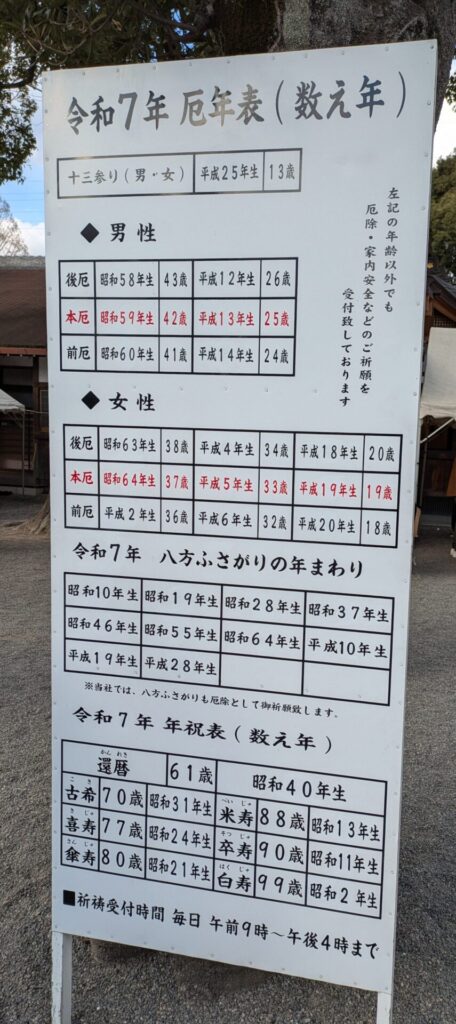 令和7年 厄年表(数え年)
十三参り(男・女) 平成25年生 13歳
左記の年齢以外でも
厄除・家内安全などのご祈願を
受付致しております
◆男性
後厄 昭和58年生 43歳 平成12年生 26歳
本厄 昭和59年生 42歳 平成13年生 25歳
前厄 昭和60年生 41歳 平成14年生 24歳
◆女性
後厄 昭和63年生 38歳 平成4年生 34歳 平成18年生 20歳
本厄 昭和64年生 37歳 平成5年生 33歳 平成19年生 19歳
前厄 平成2年生 36歳 平成6年生 32歳 平成20年生 18歳
令和7年 八方ふさがりの年まわり
昭和10年生 昭和19年生 昭和28年生 昭和37年生
昭和46年生 昭和55年生 昭和64年生 平成10年生
平成19年生 平成28年生
※当社では、八方ふさがりも厄除として御祈願致します。
令和7年 年祝表(数え年)
かんれき
還暦 61歳 昭和40年生
こき べいじゅ
古希 70歳 昭和31年生 米寿 88歳 昭和13年生
きじゅ そつじゅ
喜寿 77歳 昭和24年生 卒寿 90歳 昭和11年生
さんじゅ はくじゅ
傘寿 80歳 昭和21年生 白寿 99歳 昭和2年生
■祈祷受付時間 毎日 午前9時～午後4時まで